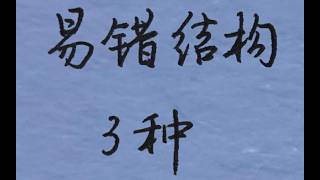 易错结构
3种